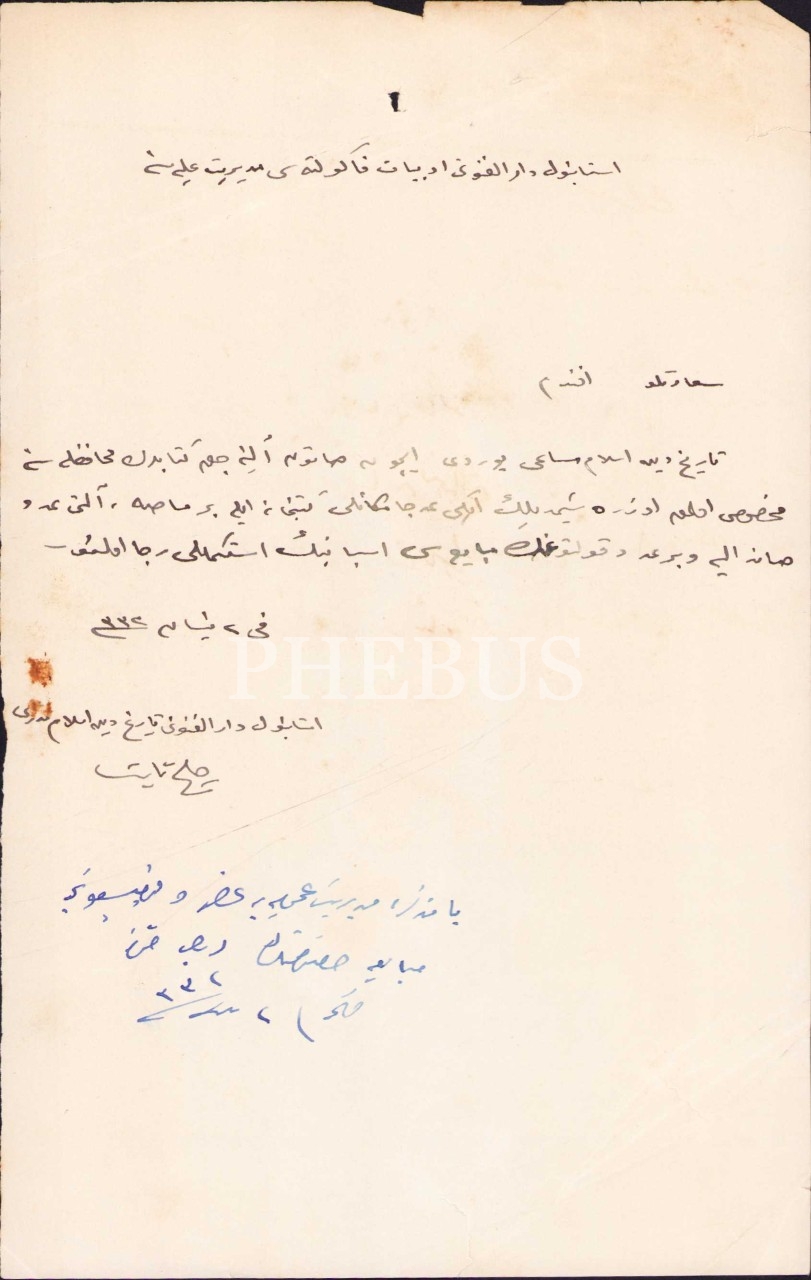 استانبول دار الفنونى ادبيات فاكولته سى مديريت عليه سنه
سعادتلو افندم
تاريخ دين اسلام مساعى يوردى ايچون صاتون آلنه جق كتابلرك محافظه سنه
مخصوص اولمق اوزره شيمديلك ايكى عدد جامكانلى كتبخانه ايله بر ماصه ، آلتى عدد
صانداليه و بر عدد قولتوغك مبايعه سى اسبابنك استكمالى رجا اولنور
فى ٢ نيسان ٣٣٢
استانبول دار الفنونى تاريخ دين اسلام مدرسى
PHEBUS
مديريت عموميه يه عرض و
مبايعه
٢ ٣٣٢